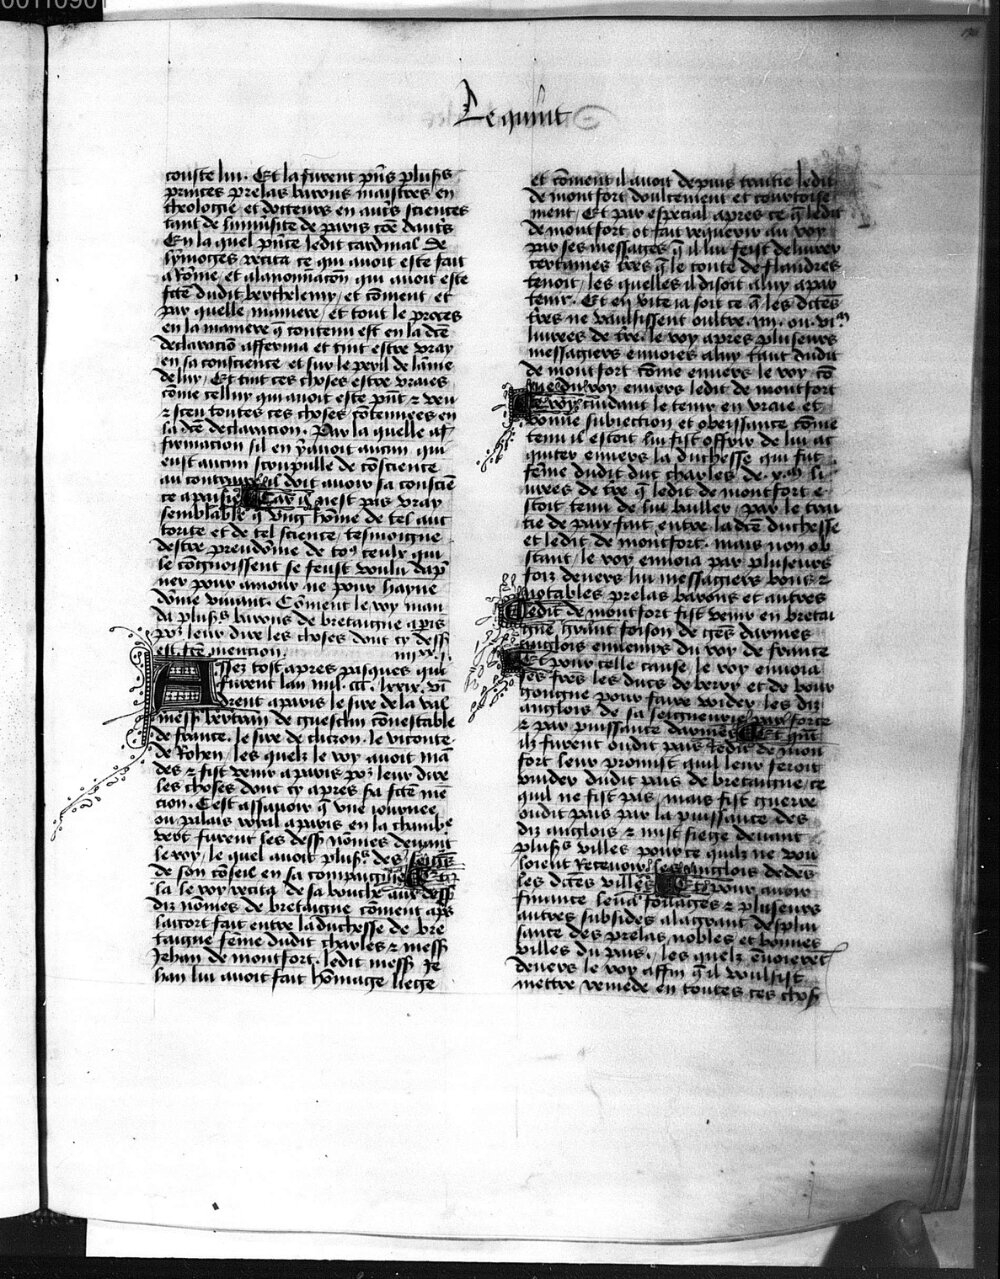 Le quint
couste lui. Et la furent pñs plușs
princes prelas barons maistres en
theologie et docteurs en autres sciences
tant de luniṽsite de paris cõe dauts
En la quel pñce ledit cardinal de
lymoges recita ce qui auoit este fait
a Rõme, et a la nominacõn qui auoit este
fcẽ dudit berthelemy, et cõment et
par quelle maniere, et tout le proces
en la maniere q̃ contenu est en la dcẽ
declaracõ afferma et tint estre vray
en sa conscience et sur le peril de lame
de lui, Et tint ces choses estre vraies
cõme cellui qui auoit este pñt ⁊ veu
⁊ sceu toutes ces choses cõtenues en
la dcẽ declaracion. Par la quelle af
firmacion sil en y auoit aucun qui
eust aucun scrupulle de cõscience
au contraire il doit auoir sa consciẽ
ce apaisie Car il nest pas vray
semblable q̃ vng hõme de tel auc
torite et de tel science, tesmoigne
destre preudõme de to⁹ ceulx qui
le congnoissent se feust voulu dãp
ner pour amour ne pour hayne
dõme viuant. Cõment le roy man
da plușs barons de bretaigne a pis
po² leur dire les choses dont cy dess̃
est fcẽ mention. iiiiˣˣ.
Assez tost apres pasques qui
furent lan mil. ccc. lxxix. vi
drent a paris le sire de la val
mess̃ bertran de guesclin conestable
de france. le sire de clicon. le viconte
de Rohen, les quelz le roy auoit mã
des ⁊ fist venir a paris po² leur dire
les choses dont cy apres sa fcẽ mẽ
cion. Cest assauoir q̃ vne iournee
ou palais roial a paris en la chambꝰ
vert furent les dess̃ nõmes deuant
le roy, le quel auoit plușs des seigñs
de son cõseil en sa compaignie Et
la le roy recita de sa bouche aux dess̃
diz nõmes de bretaigne cõment aps̃
lacort fait entre la duchesse de bre
taigne fẽme dudit charles ⁊ mess̃
Jehan de montfort. ledit mess̃ Je
han lui auoit fait hõmage liege
et cõment il auoit depuis traitie ledit
de montfort doulcement et courtoise
ment, Et par especial apres ce q̃ ledit
de montfort ot fait requerir au roy
par ses messages q̃ il lui feist deliurer
certaines tr̃es q̃ le conte de flandres
tenoit, les quelles il disoit a luy apar
tenir. Et en vite ia soit ce q̃ les dictes
tr̃es ne vaulsissent oultre. iiii. ou. viᵐ
liurees de tr̃e. le roy apres pluseurs
messagiers enuoies a luy tant dudit
de montfort cõme enuers le roy cõ
me du roy enuers ledit de montfort
le roy cuidant le tenir en vraie et
bonne subiection et obeissance cõme
tenu il estoit lui fist offrir de lui ac
quiter enuers la duchesse qui fut
fẽme dudit duc charles de .xᵐ li
urees de tr̃e q̃ ledit de montfort e
stoit tenu de lui bailler, par le trai
tie de paix fait entre la dcẽ duchesse
et ledit de montfort. mais non ob
stant, le roy enuoia par pluseurs
foiz deuers lui messagiers bons ⁊
notables prelas barons et autres
Ledit de montfort fist venir en bretai
gne grant foison de gẽs darmes
anglois ennemis du roy de france
Et pour celle cause, le roy enuoia
ses fr̃es les ducs de berry et de bour
gongne pour faire wider, les diz
anglois de sa seigneurie par force
⁊ par puissance darmes Et q̃nt
ilz furent oudit pais ledit de mon
fort leur promist quil leur feroit
vuider dudit pais de bretaigne, ce
quil ne fist pas, mais fist guerre
oudit pais par la puissance des
diz anglois ⁊ mist siege deuant
plușs villes pource quilz ne vou
loient Receuoir les anglois dedẽs
les dictes villes Et pour auoir
finance leua fouages ⁊ pluseurs
autres subsides a la grant desplai
sance des prelas, nobles et bonnes
villes du pais, les quelz enuoierẽt
deuers le roy affin q̃ il voulsist
mettre remede en toutes ces chos̃